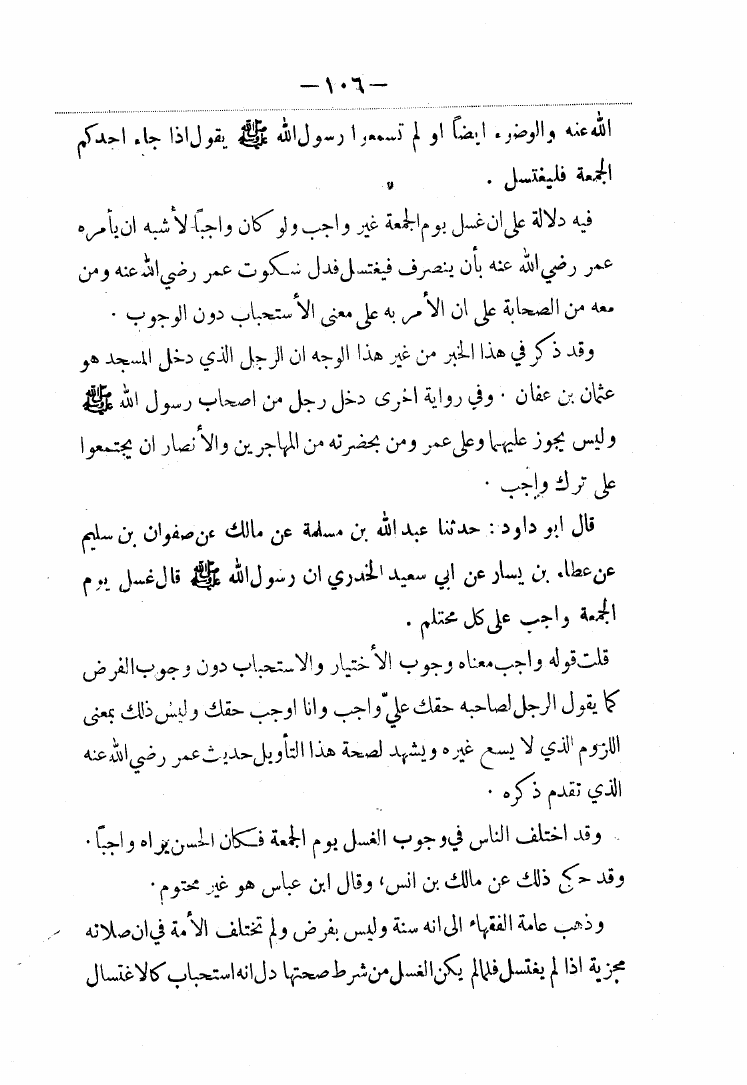 — ١٠٦ —
الله عنه والوضوء ايضاً او لم تسمعوا رسول الله ﷺ يقول اذا جاء احدكم
الجمعة فليغتسل .
فيه دلالة على ان غسل يوم الجمعة غير واجب ولو كان واجباً لأشبه ان يأمره
عمر رضي الله عنه بأن ينصرف فيغتسل فدل سكوت عمر رضي الله عنه ومن
معه من الصحابة على ان الأمر به على معنى الأستحباب دون الوجوب .
وقد ذكر في هذا الخبر من غير هذا الوجه ان الرجل الذي دخل المسجد هو
عثمان بن عفان . وفي رواية اخرى دخل رجل من اصحاب رسول الله ﷺ
وليس يجوز عليهما وعلى عمر ومن بحضرته من المهاجرين والأنصار ان يجتمعوا
على ترك واجب .
قال ابو داود : حدثنا عبد الله بن مسلمة عن مالك عن صفوان بن سليم
عن عطاء بن يسار عن ابي سعيد الخدري ان رسول الله ﷺ قال غسل يوم
الجمعة واجب على كل محتلم .
قلت قوله واجب معناه وجوب الأختيار والاستحباب دون وجوب الفرض
كما يقول الرجل لصاحبه حقك عليّ واجب وانا اوجب حقك وليس ذلك بمعنى
اللزوم الذي لا يسع غيره ويشهد لصحة هذا التأويل حديث عمر رضي الله عنه
الذي تقدم ذكره .
وقد اختلف الناس في وجوب الغسل يوم الجمعة فكان الحسن يراه واجباً .
وقد حكي ذلك عن مالك بن انس، وقال ابن عباس هو غير محتوم .
وذهب عامة الفقهاء الى انه سنة وليس بفرض ولم تختلف الأمة في ان صلاته
مجزية اذا لم يغتسل فلما لم يكن الغسل من شرط صحتها دل انه استحباب كالاغتسال